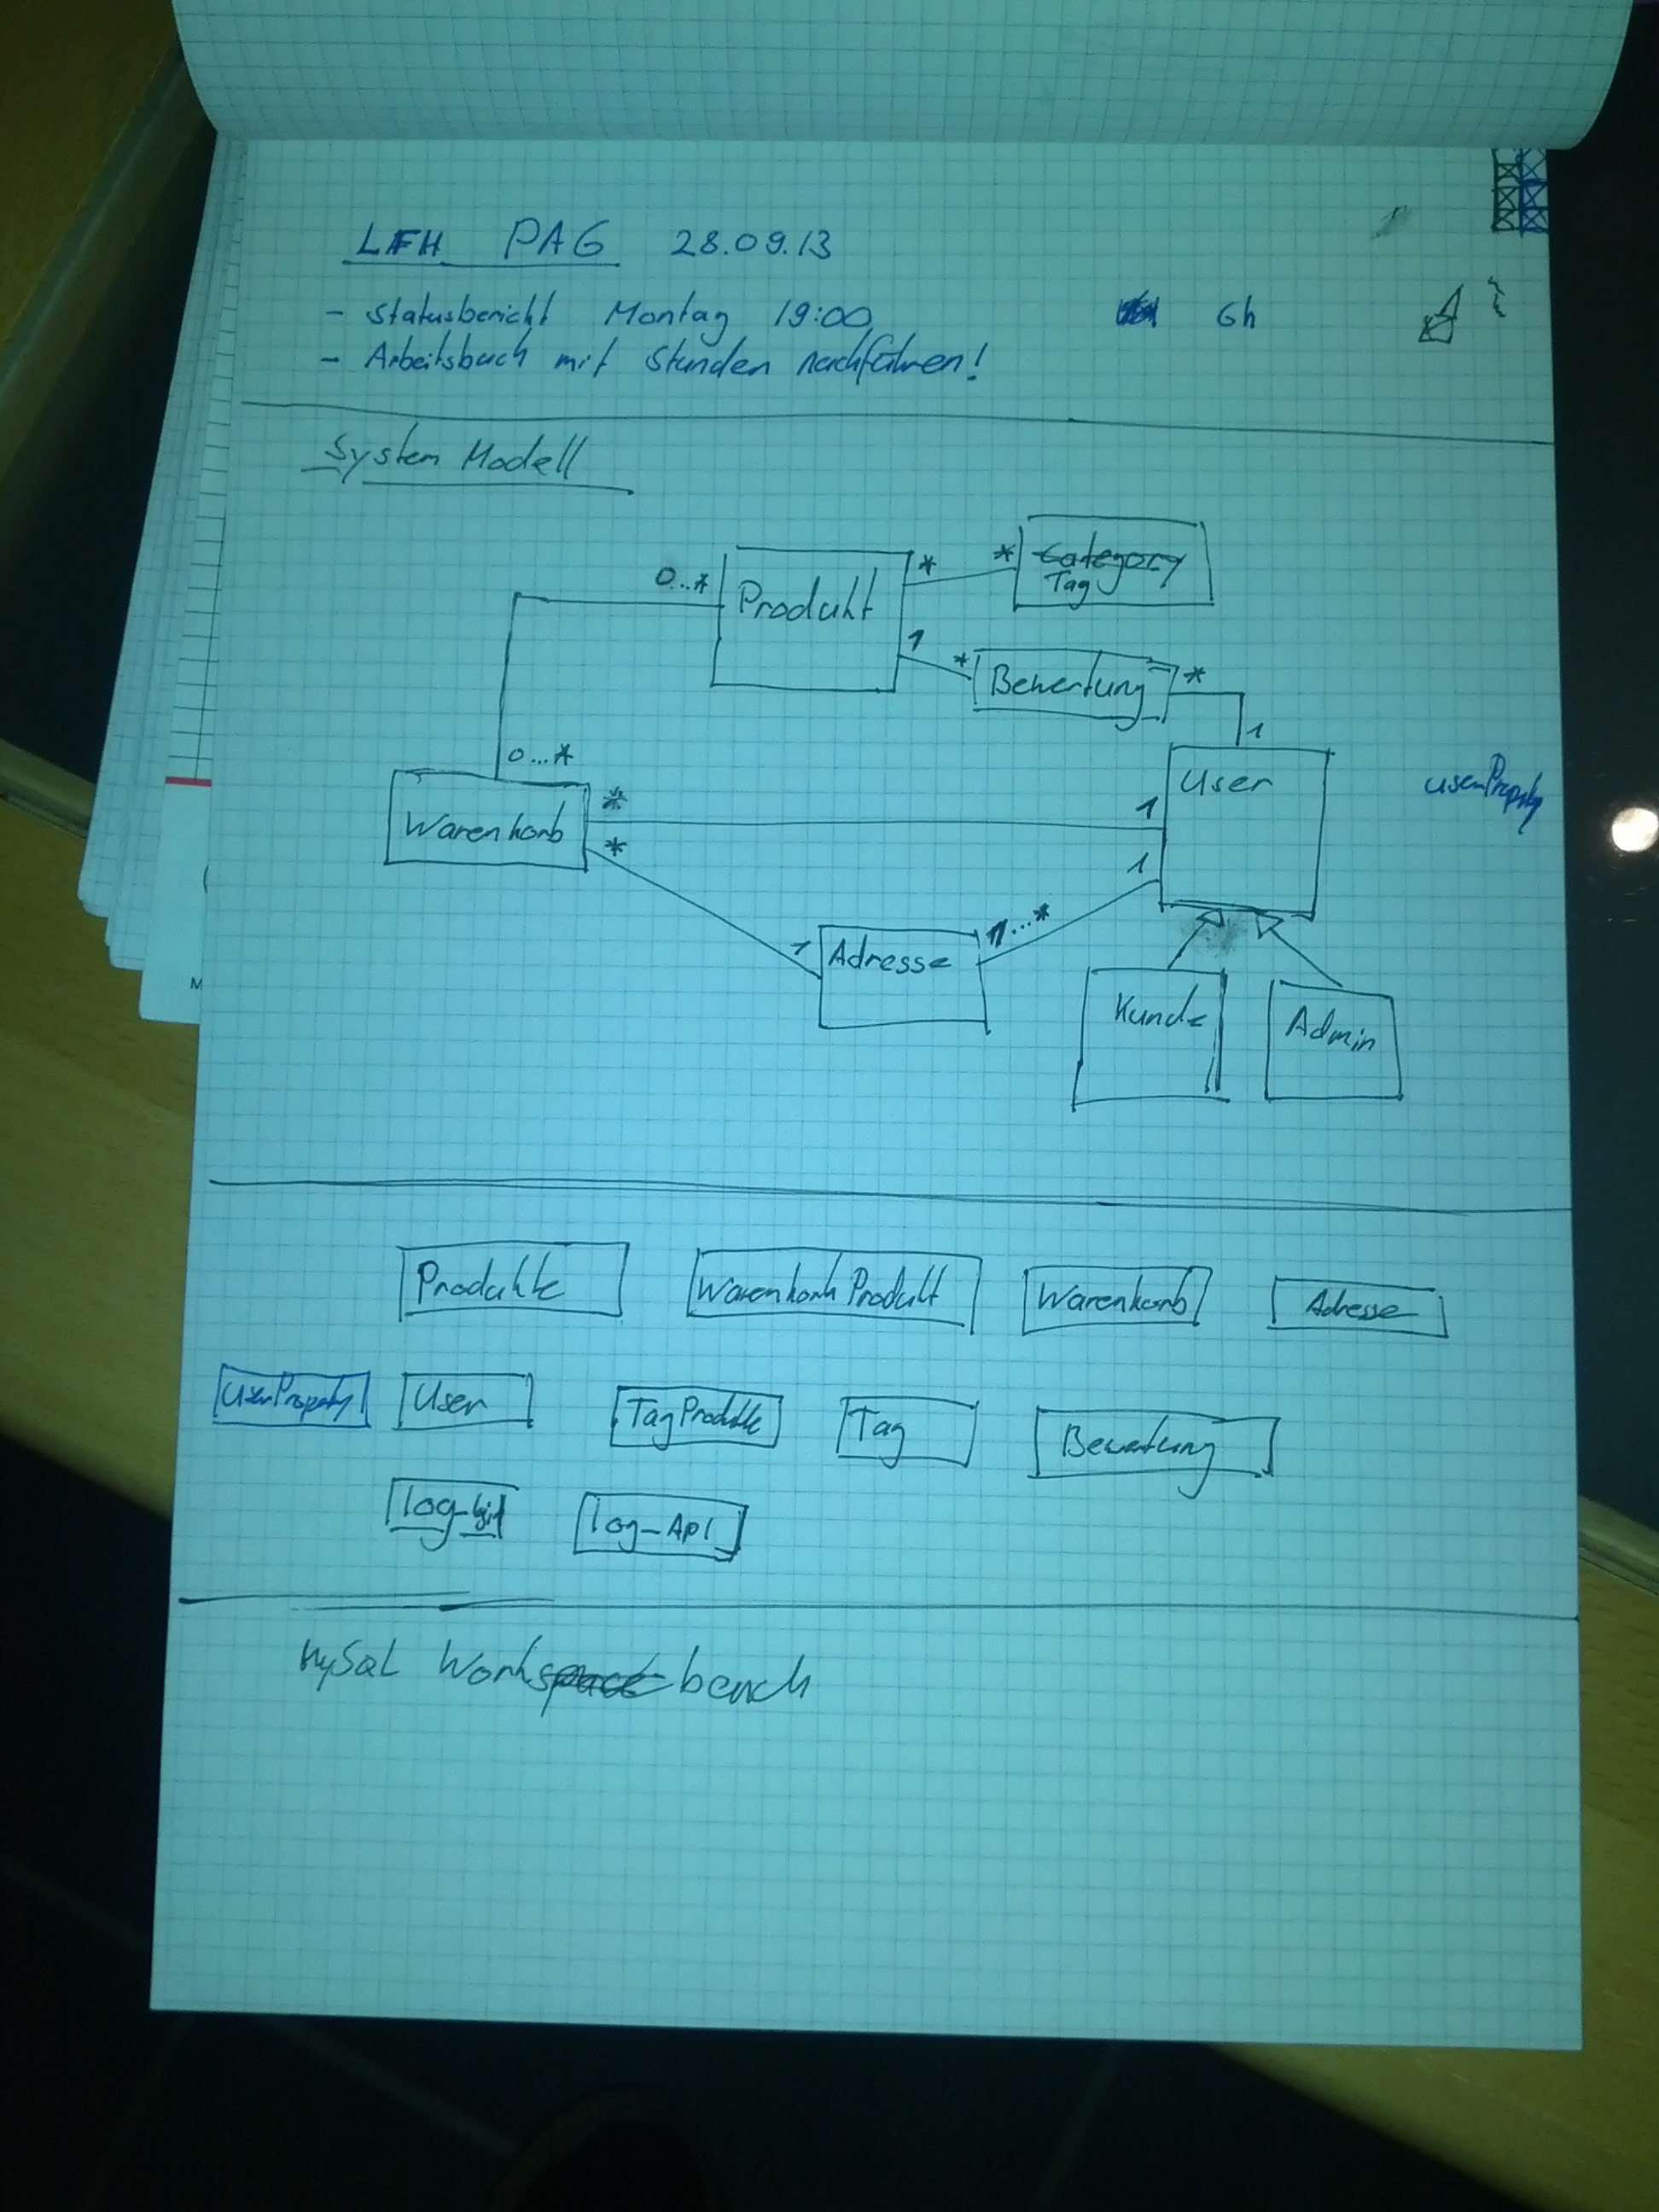 LFH PAG 28.09.13
- Statusbericht Montag 19:00 6h
- Arbeitsbuch mit Stunden nachführen!
System Modell
0...* Produkt * * Category
Tag
1 * Bewertung *
1
0...*
User
userProperty
Warenkorb * 1
* 1
1 Adresse 1...*
Kunde Admin
Produkte Warenkorb Produkt Warenkorb Adresse
UserProperty User TagProdukte Tag Bewertung
log_login log_API
MySQL Workspace bench
M